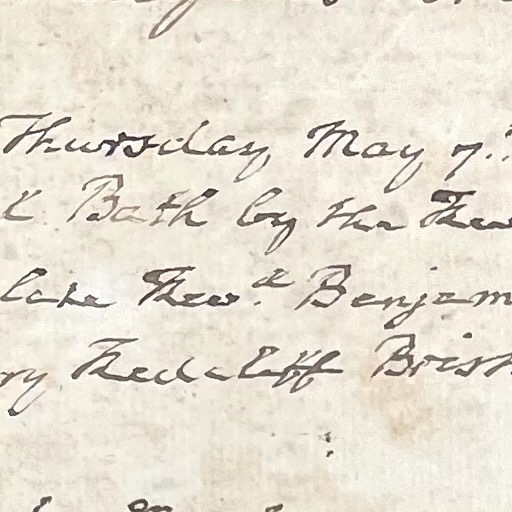 Thursday May 7.th
t Bath by the Rev
late Rev.d Benjam
ry Redcliff Brist